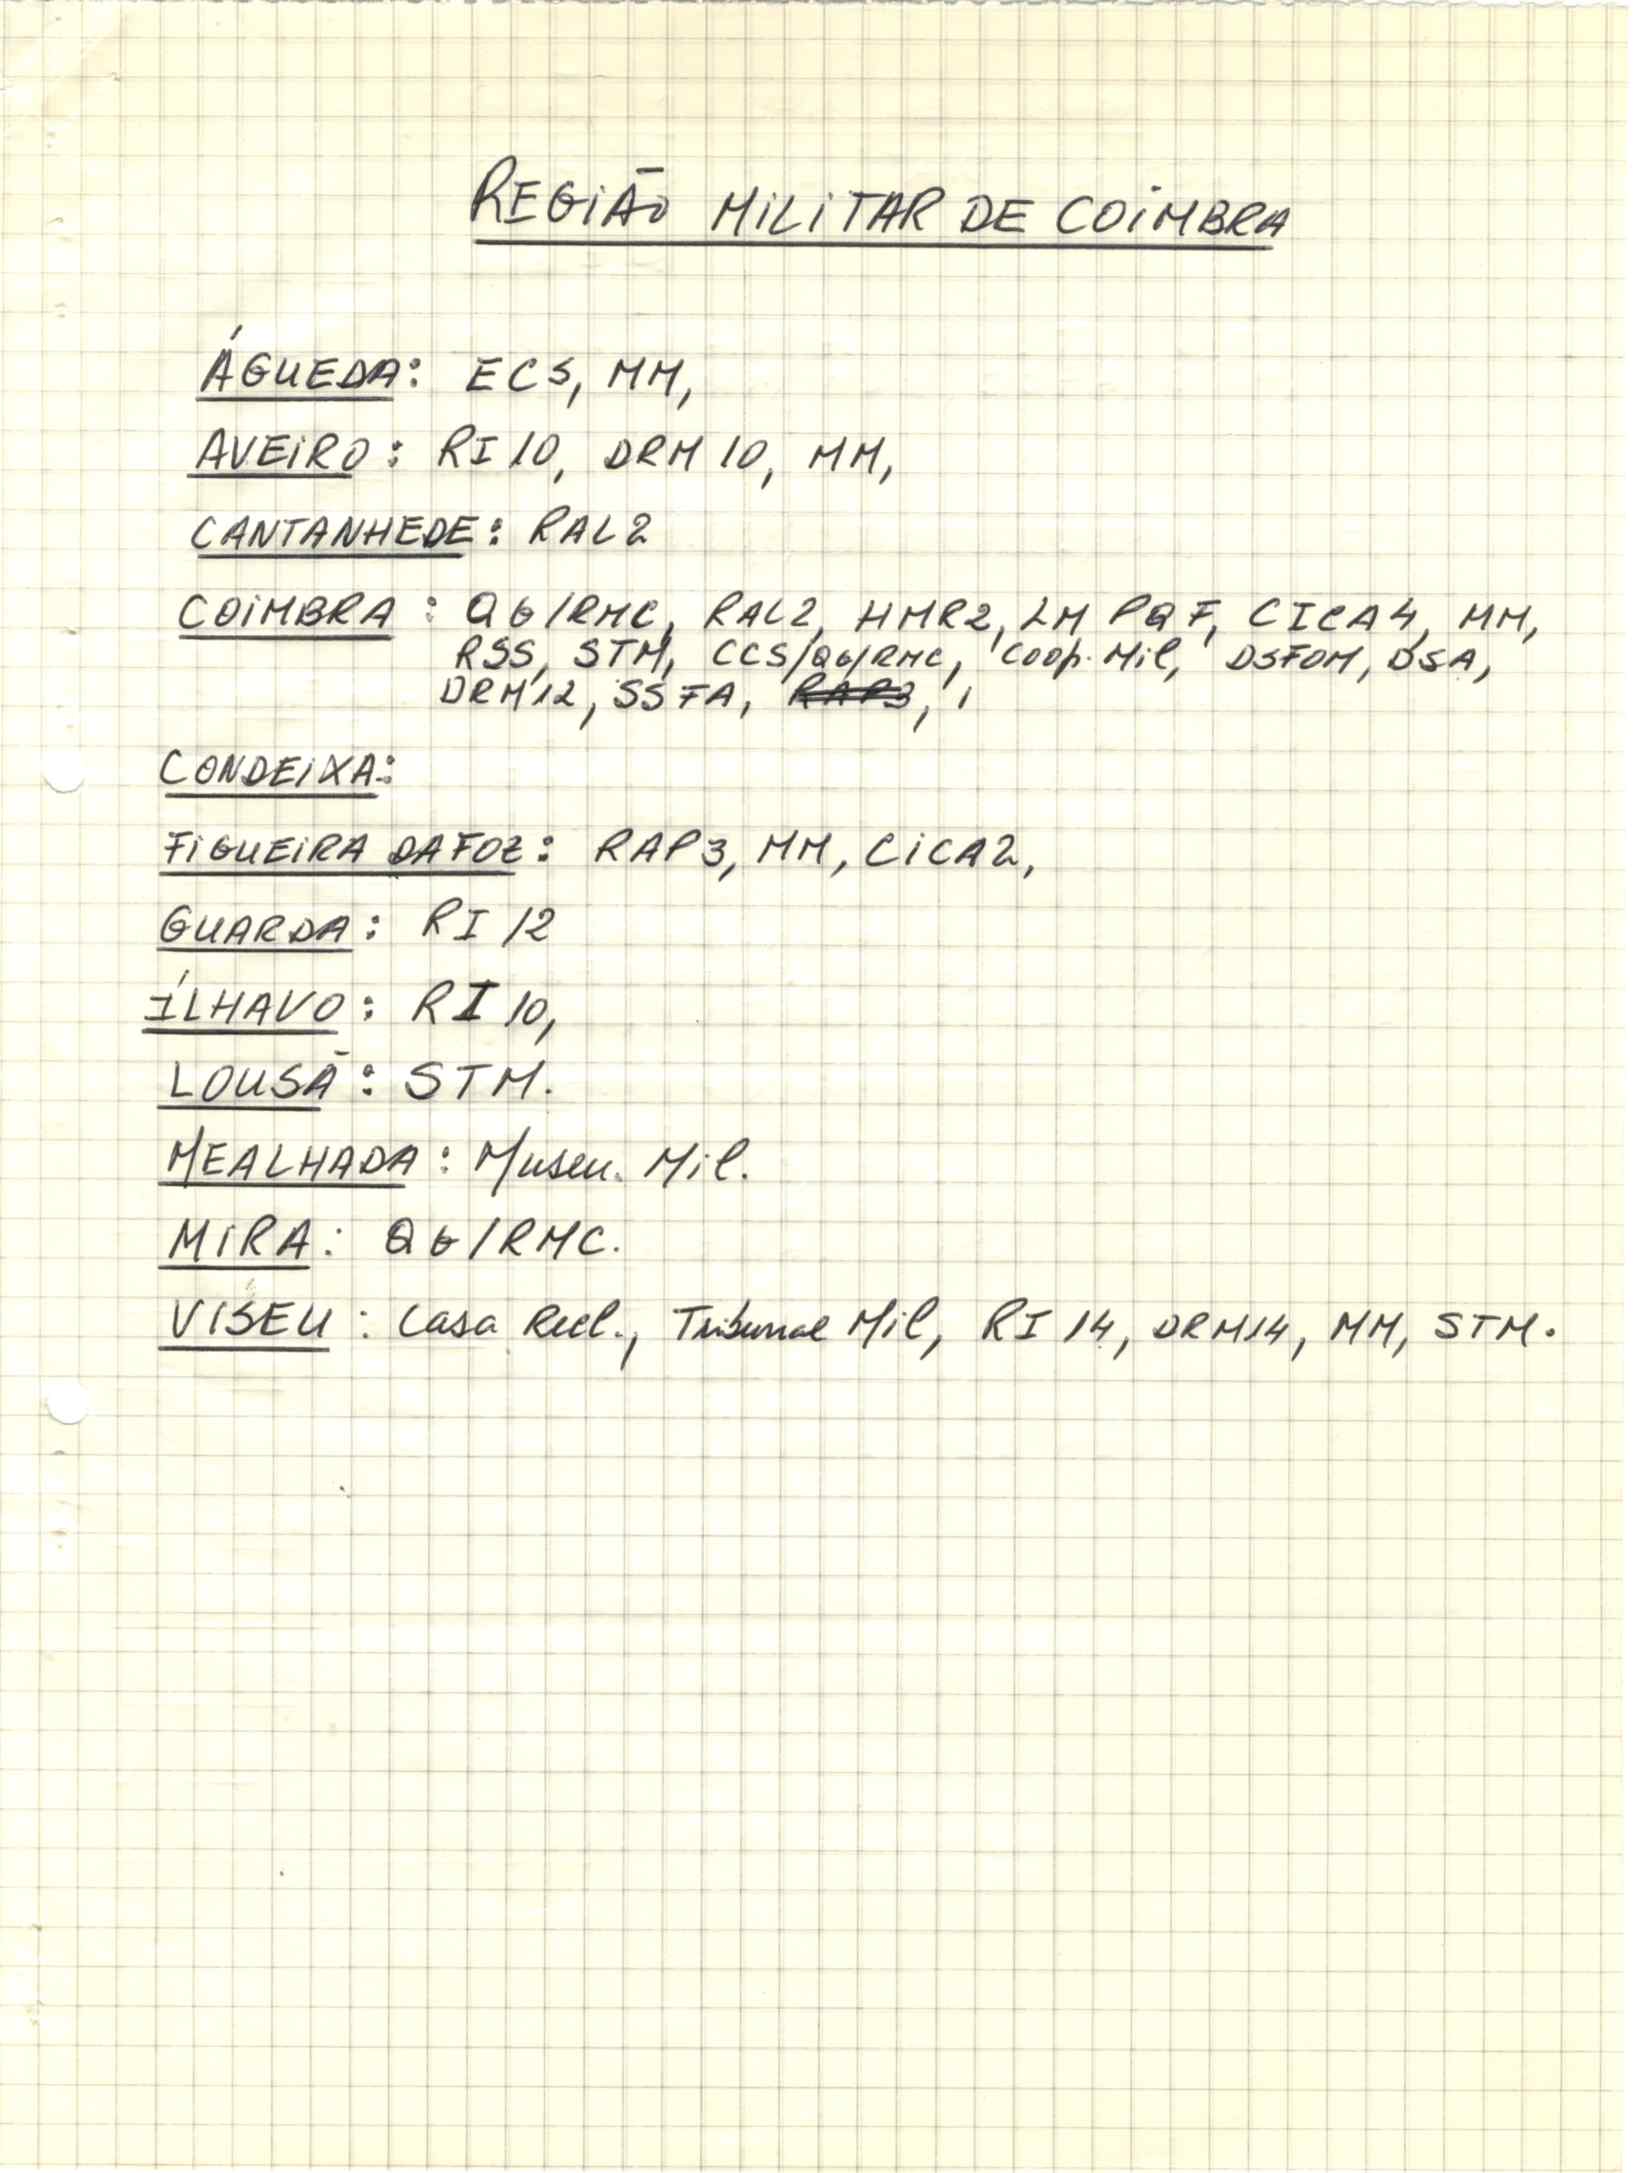 REGIÃO MILITAR DE COIMBRA
ÁGUEDA: ECS, MM,
AVEIRO: RI 10, DRM 10, MM,
CANTANHEDE: RAL2
COIMBRA: QG/RMC, RAL2, HMR2, LM PQF, CICA4, MM,
RSS, STM, CCS/QG/RMC, Coop. Mil, DSFOM, DSA,
DRM12, SSFA, RAP3, ,
CONDEIXA:
FIGUEIRA DA FOZ: RAP3, MM, CICA2,
GUARDA: RI 12
ÍLHAVO: RI 10,
LOUSÃ: STM.
MEALHADA: Museu. Mil.
MIRA: QG/RMC.
VISEU: Casa Recl., Tribunal Mil, RI 14, DRM14, MM, STM.